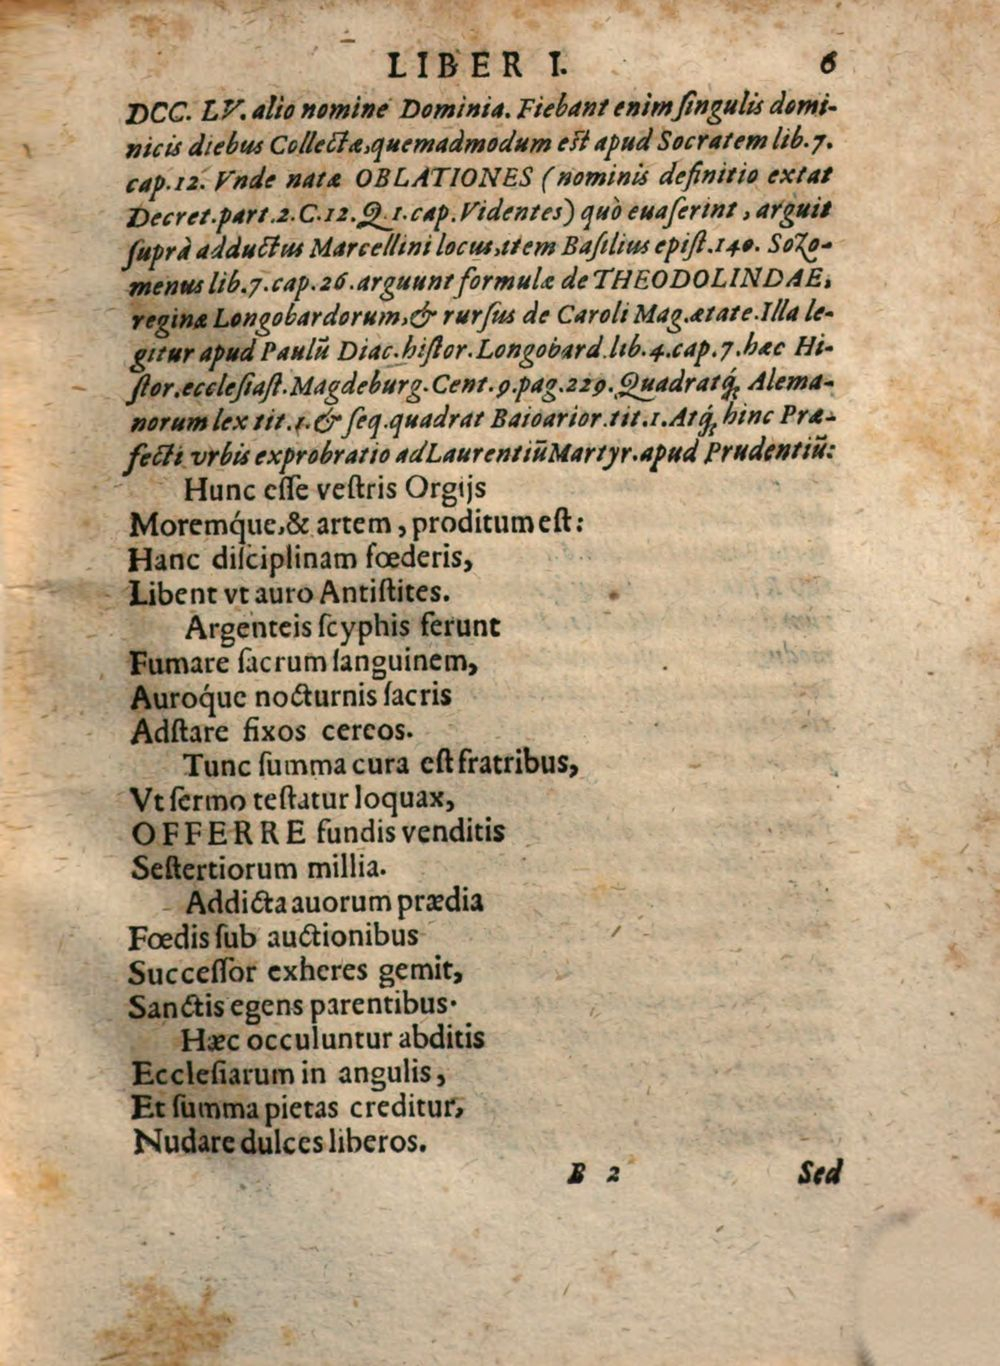 LIBER I. 6
DCC. LV. alio nomine Dominia. Fiebant enim ſingulis domi-
nicis diebus Collectæ, quemadmodum eſt apud Socratem lib. 7.
cap. 12. Vnde natæ OBLATIONES (nominis definitio extat
Decret. part. 2. C. 12. Q. 1. cap. Videntes) quò euaſerint, arguit
ſuprà adductus Marcellini locus, item Baſilius epiſt. 140. Sozo-
menus lib. 7. cap. 26. arguunt formulæ de THEODOLINDAE,
reginæ Longobardorum, & rurſus de Caroli Mag. ætate. Illa le-
gitur apud Paulū Diac. hiſtor. Longobard. lib. 4. cap. 7. hæc Hi-
ſtor. eccleſiaſt. Magdeburg. Cent. 9. pag. 229. Quadratq́; Alema-
norum lex tit. 1. & ſeq. quadrat Baioarior. tit. 1. Atq́; hinc Præ-
fecti vrbis exprobratio ad Laurentiū Martyr. apud Prudentiū:
Hunc eſſe veſtris Orgijs
Moremq́ue, & artem, proditum eſt:
Hanc diſciplinam fœderis,
Libent vt auro Antiſtites.
Argenteis ſcyphis ferunt
Fumare ſacrum ſanguinem,
Auroq́ue nocturnis ſacris
Adſtare fixos cereos.
Tunc ſumma cura eſt fratribus,
Vt ſermo teſtatur loquax,
OFFERRE fundis venditis
Seſtertiorum millia.
Addicta auorum prædia
Fœdis ſub auctionibus
Succeſſor exheres gemit,
Sanctis egens parentibus.
Hæc occuluntur abditis
Eccleſiarum in angulis,
Et ſumma pietas creditur,
Nudare dulces liberos.
B 2 Sed